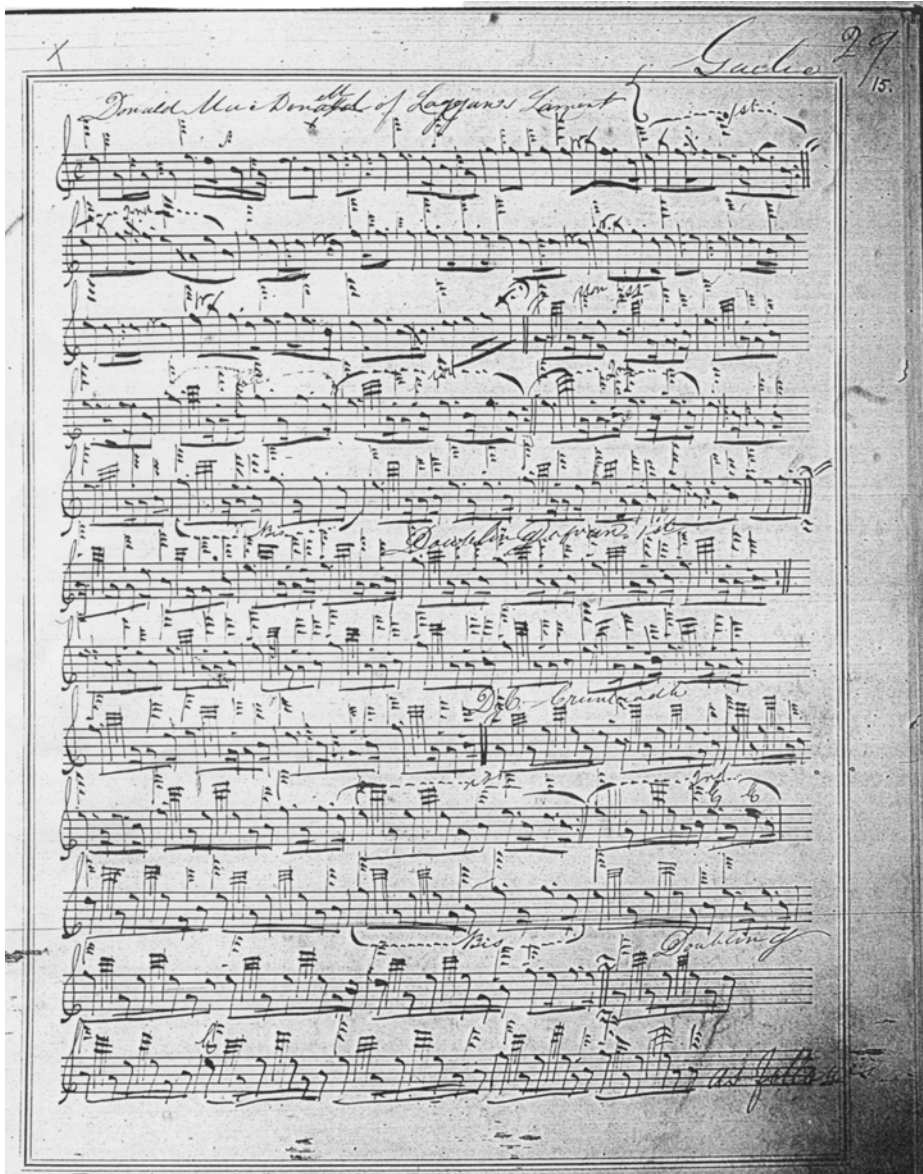 Gaelic 29
15.
Donald Mac Donell of Laggan's Lament
1st
2nd
1st
1st
Bis
Doubling of Varn. 1st
D.C. Crunluadh
1st
2nd
Bis
Doubling
as follows